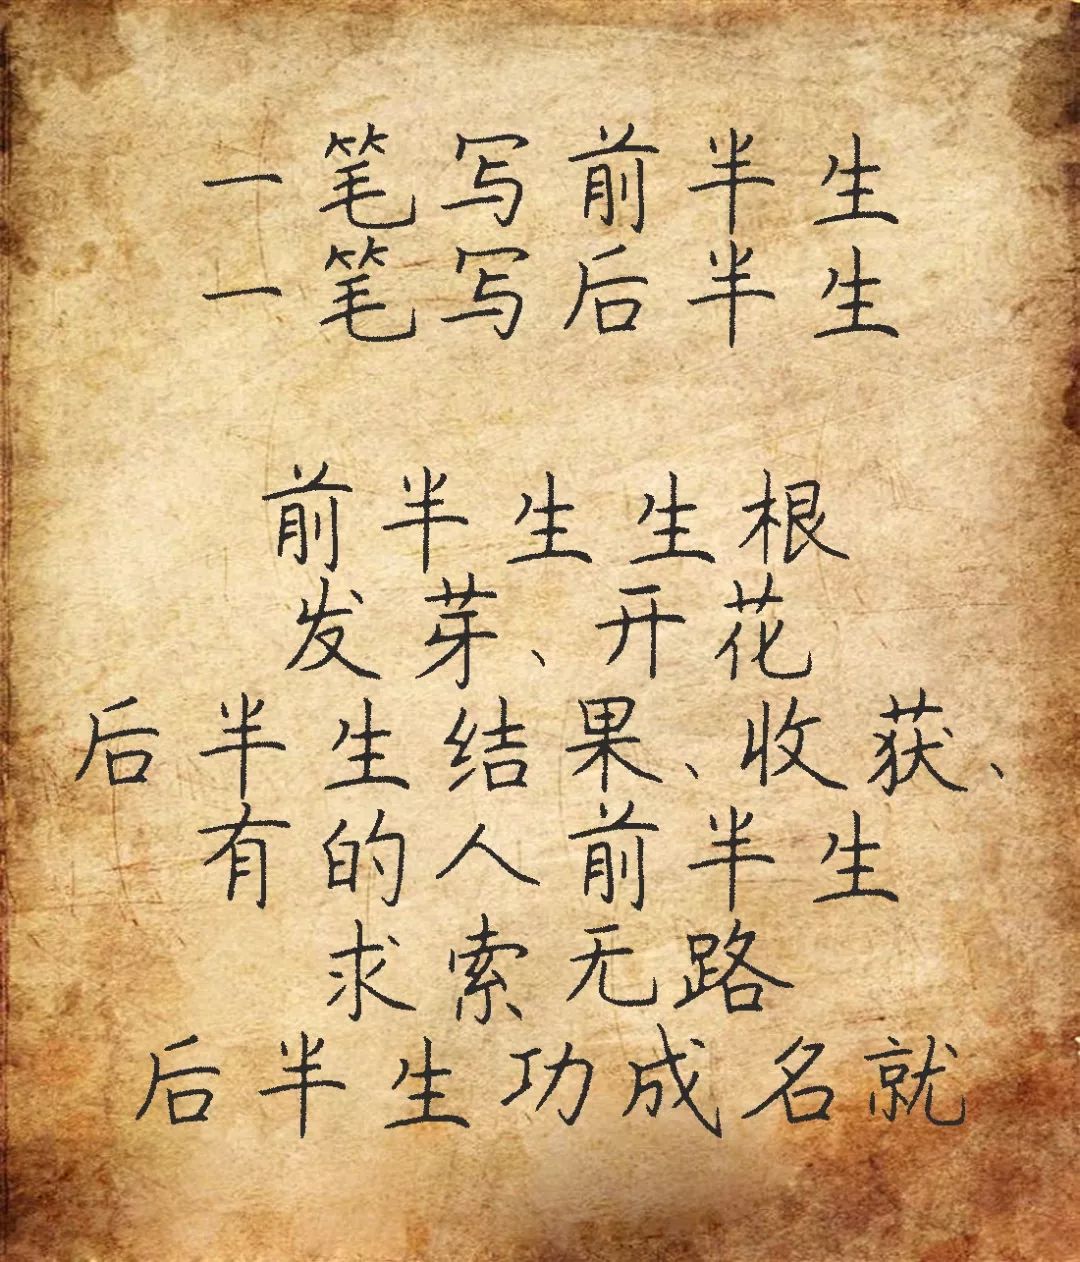 一笔写前半生
一笔写后半生
前半生生根
发芽、开花
后半生结果、收获、
有的人前半生
求索无路
后半生功成名就